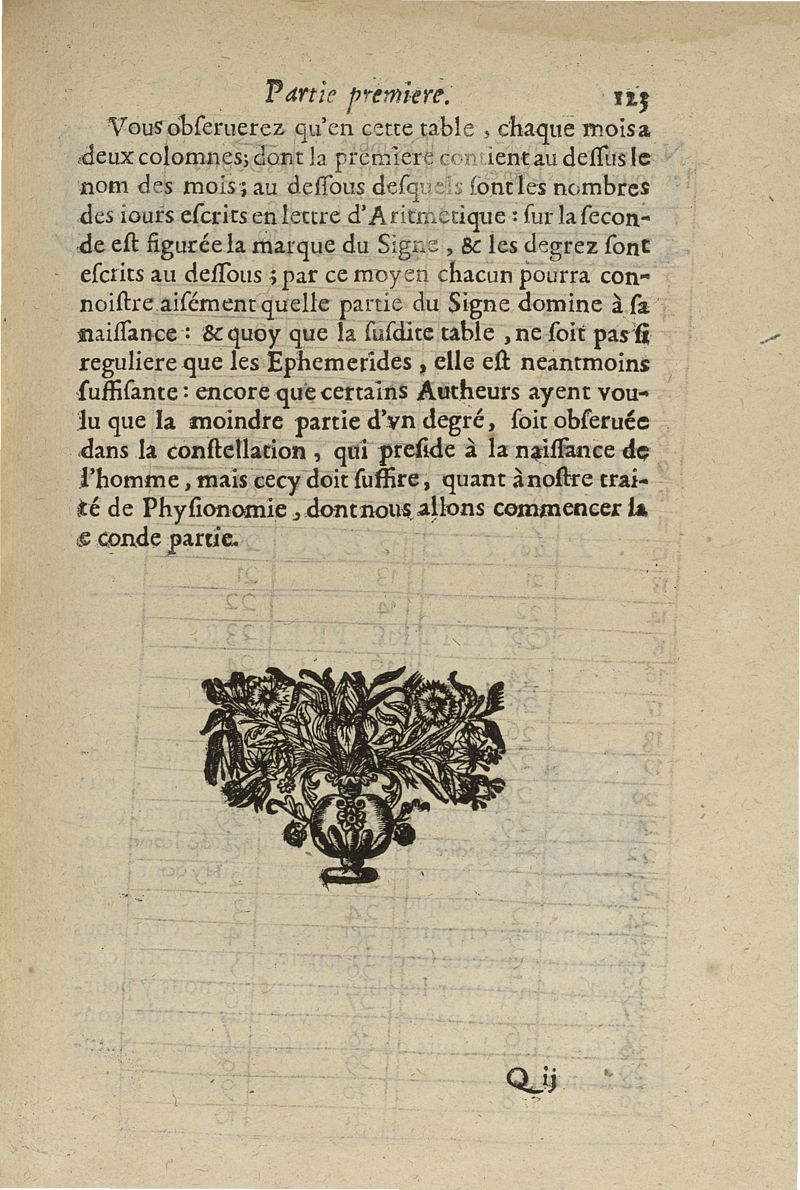 Partie premiere. 123
Vous obſeruerez qu'en cette table , chaque mois a
deux colomnes; dont la premiere contient au deſſus le
nom des mois ; au deſſous deſquels ſont les nombres
des iours eſcrits en lettre d'Aritmetique : ſur la ſecon-
de eſt figurée la marque du Signe , & les degrez ſont
eſcrits au deſſous ; par ce moyen chacun pourra con-
noiſtre aiſément quelle partie du Signe domine à ſa
naiſſance : & quoy que la ſuſdite table , ne ſoit pas ſi
reguliere que les Ephemerides , elle eſt neantmoins
ſuffiſante : encore que certains Autheurs ayent vou-
lu que la moindre partie d'vn degré, ſoit obſeruée
dans la conſtellation , qui preſide à la naiſſance de
l'homme , mais cecy doit ſuffire, quant à noſtre trai-
té de Phyſionomie , dont nous allons commencer la
e conde partie.
Q ij